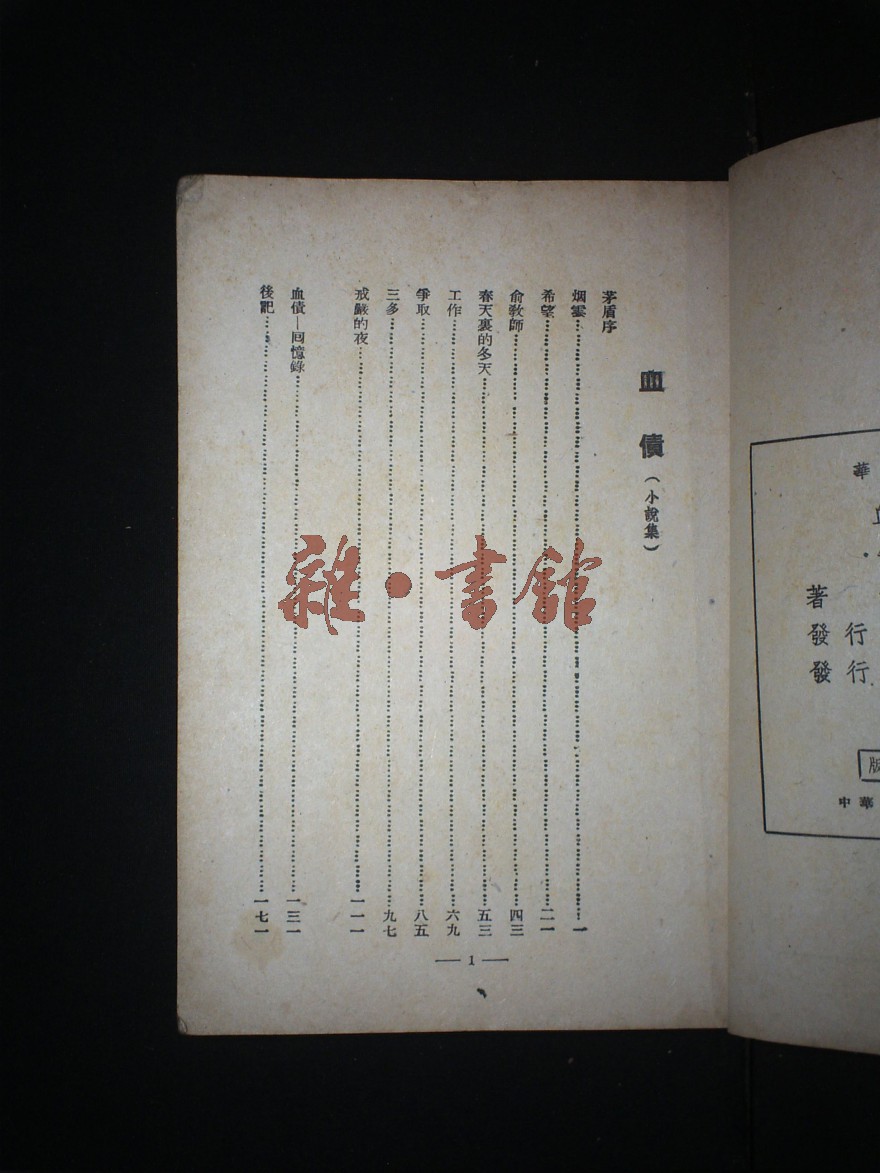 血債（小說集）
茅盾序
烟雲…………一
希望…………二一
俞敎師…………四三
春天裏的冬天…………五三
工作…………六九
爭取…………八五
三多…………九七
戒嚴的夜…………一一一
血債—回憶錄…………一三一
後記…………一七一
— 1 —
雜·書館
華
著
發行
發行
版
中華